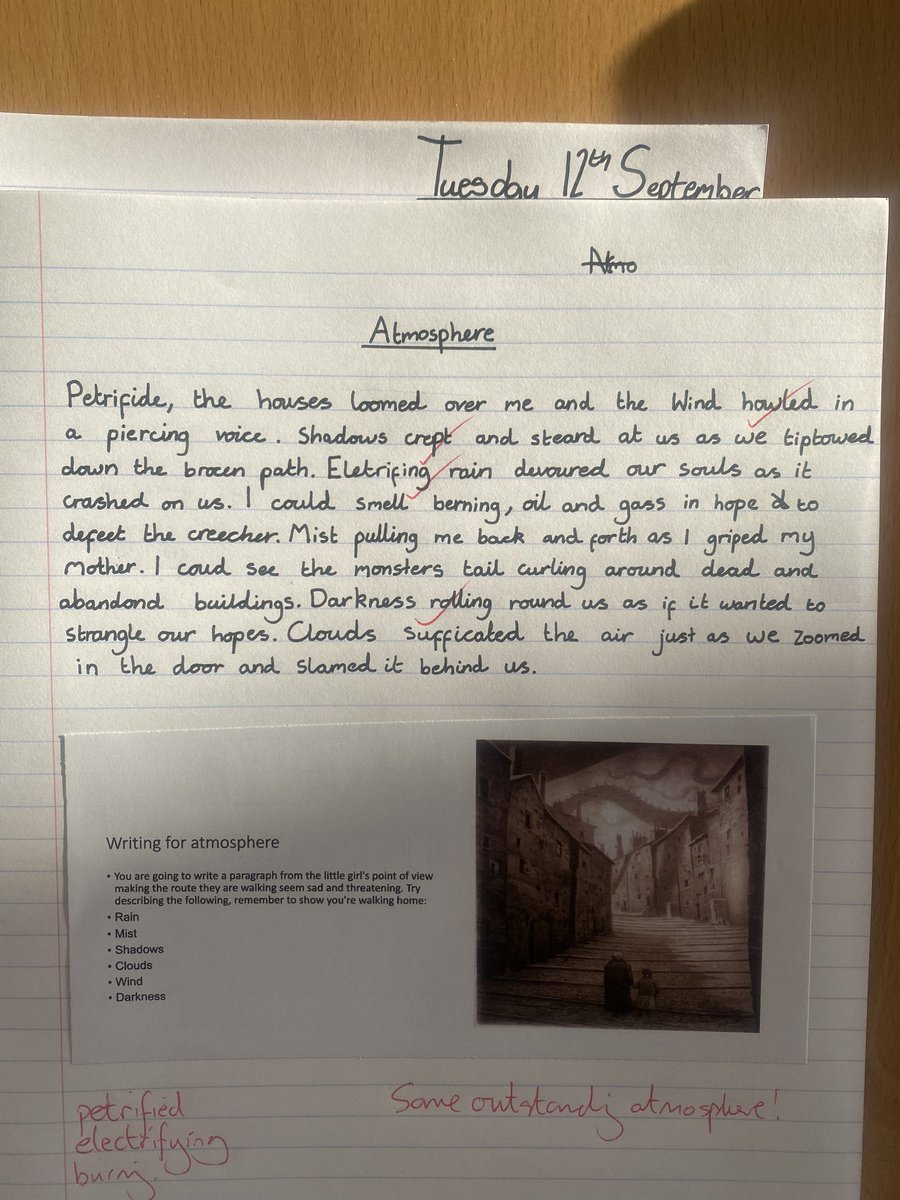 Tuesday 12th September
Atmo
Atmosphere
Petrifide, the houses loomed over me and the Wind howled in
a piercing voice. Shadows crept and steard at us as we tiptowed
down the brocen path. Eletrifing rain devoured our souls as it
crashed on us. I could smell berning, oil and gass in hope to
defeet the creecher. Mist pulling me back and forth as I griped my
mother. I coud see the monsters tail curling around dead and
abandond buildings. Darkness rolling round us as if it wanted to
strangle our hopes. Clouds sufficated the air just as we zoomed
in the door and slamed it behind us.
Writing for atmosphere
• You are going to write a paragraph from the little girl's point of view
making the route they are walking seem sad and threatening. Try
describing the following, remember to show you're walking home:
• Rain
• Mist
• Shadows
• Clouds
• Wind
• Darkness
Some outstanding atmosphere!
petrified
electrifying
burning.